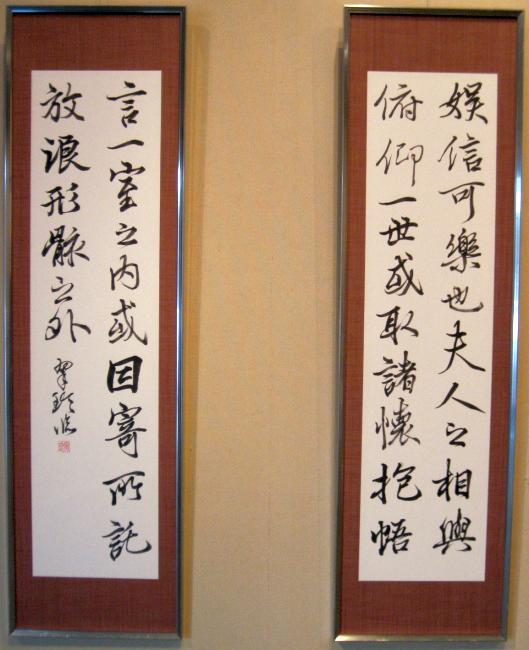 娯信可樂也夫人之相與
俯仰一世或取諸懷抱悟
言一室之内或因寄所託
放浪形骸之外
翠 臨